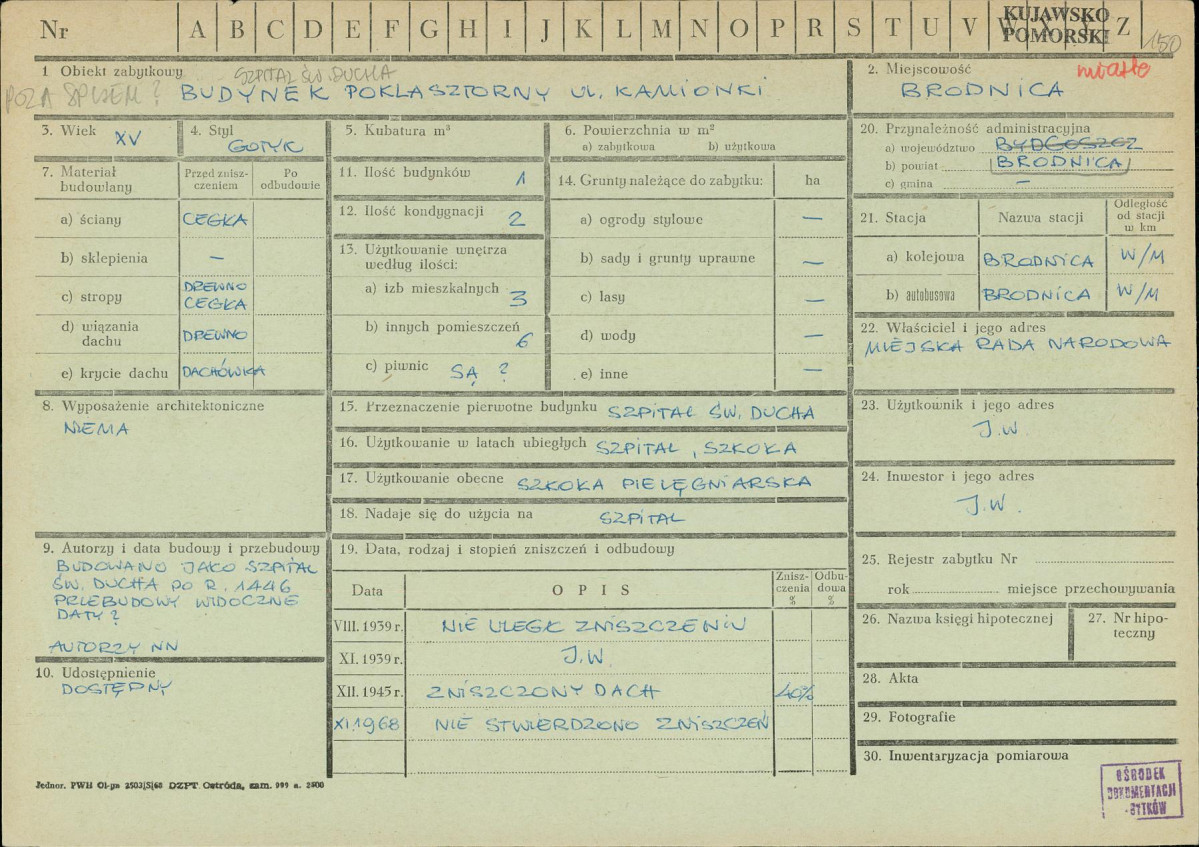 Nr A B C D E F G H I J K L M N O P R S T U V W X Y Z
KUJAWSKO
POMORSKI
150
1 Obiekt zabytkowy
SZPITAL ŚW. DUCHA
POZA SPISEM?
BUDYNEK POKLASZTORNY UL. KAMIONKI
2. Miejscowość
miasto
BRODNICA
3. Wiek XV
4. Styl
GOTYK
5. Kubatura m³
6. Powierzchnia w m²
a) zabytkowa b) użytkowa
20. Przynależność administracyjna
a) województwo BYDGOSZCZ
b) powiat BRODNICA
c) gmina —
7. Materiał
budowlany
Przed znisz-
czeniem
Po
odbudowie
a) ściany CEGŁA
b) sklepienia —
c) stropy DREWNO
CEGŁA
d) wiązania
dachu DREWNO
e) krycie dachu DACHÓWKA
11. Ilość budynków 1
12. Ilość kondygnacji 2
13. Użytkowanie wnętrza
według ilości:
a) izb mieszkalnych 3
b) innych pomieszczeń 6
c) piwnic SĄ ?
14. Grunty należące do zabytku: ha
a) ogrody stylowe —
b) sady i grunty uprawne —
c) lasy —
d) wody —
e) inne —
21. Stacja Nazwa stacji
Odległość
od stacji
w km
a) kolejowa BRODNICA W/M
b) autobusowa BRODNICA W/M
22. Właściciel i jego adres
MIEJSKA RADA NARODOWA
8. Wyposażenie architektoniczne
NIEMA
15. Przeznaczenie pierwotne budynku SZPITAL ŚW. DUCHA
16. Użytkowanie w latach ubiegłych SZPITAL, SZKOŁA
17. Użytkowanie obecne SZKOŁA PIELĘGNIARSKA
18. Nadaje się do użycia na SZPITAL
23. Użytkownik i jego adres
J.W
24. Inwestor i jego adres
J.W.
9. Autorzy i data budowy i przebudowy
BUDOWANO JAKO SZPITAL
ŚW. DUCHA PO R. 1446
PRZEBUDOWY WIDOCZNE
DATY?
AUTORZY NN
10. Udostępnienie
DOSTĘPNY
19. Data, rodzaj i stopień zniszczeń i odbudowy
Data OPIS
Znisz-
czenia
%
Odbu-
dowa
%
VIII. 1939 r. NIE ULEGŁ ZNISZCZENIU
XI. 1939 r. J.W.
XII. 1945 r. ZNISZCZONY DACH 40%
XI.1968 NIE STWIERDZONO ZNISZCZEŃ
25. Rejestr zabytku Nr
rok miejsce przechowywania
26. Nazwa księgi hipotecznej
27. Nr hipo-
teczny
28. Akta
29. Fotografie
30. Inwentaryzacja pomiarowa
Jednor. PWH Ol-yn 2503/S/68 DZPT Ostróda, zam. 999 n. 2500
OŚRODEK
DOKUMENTACJI